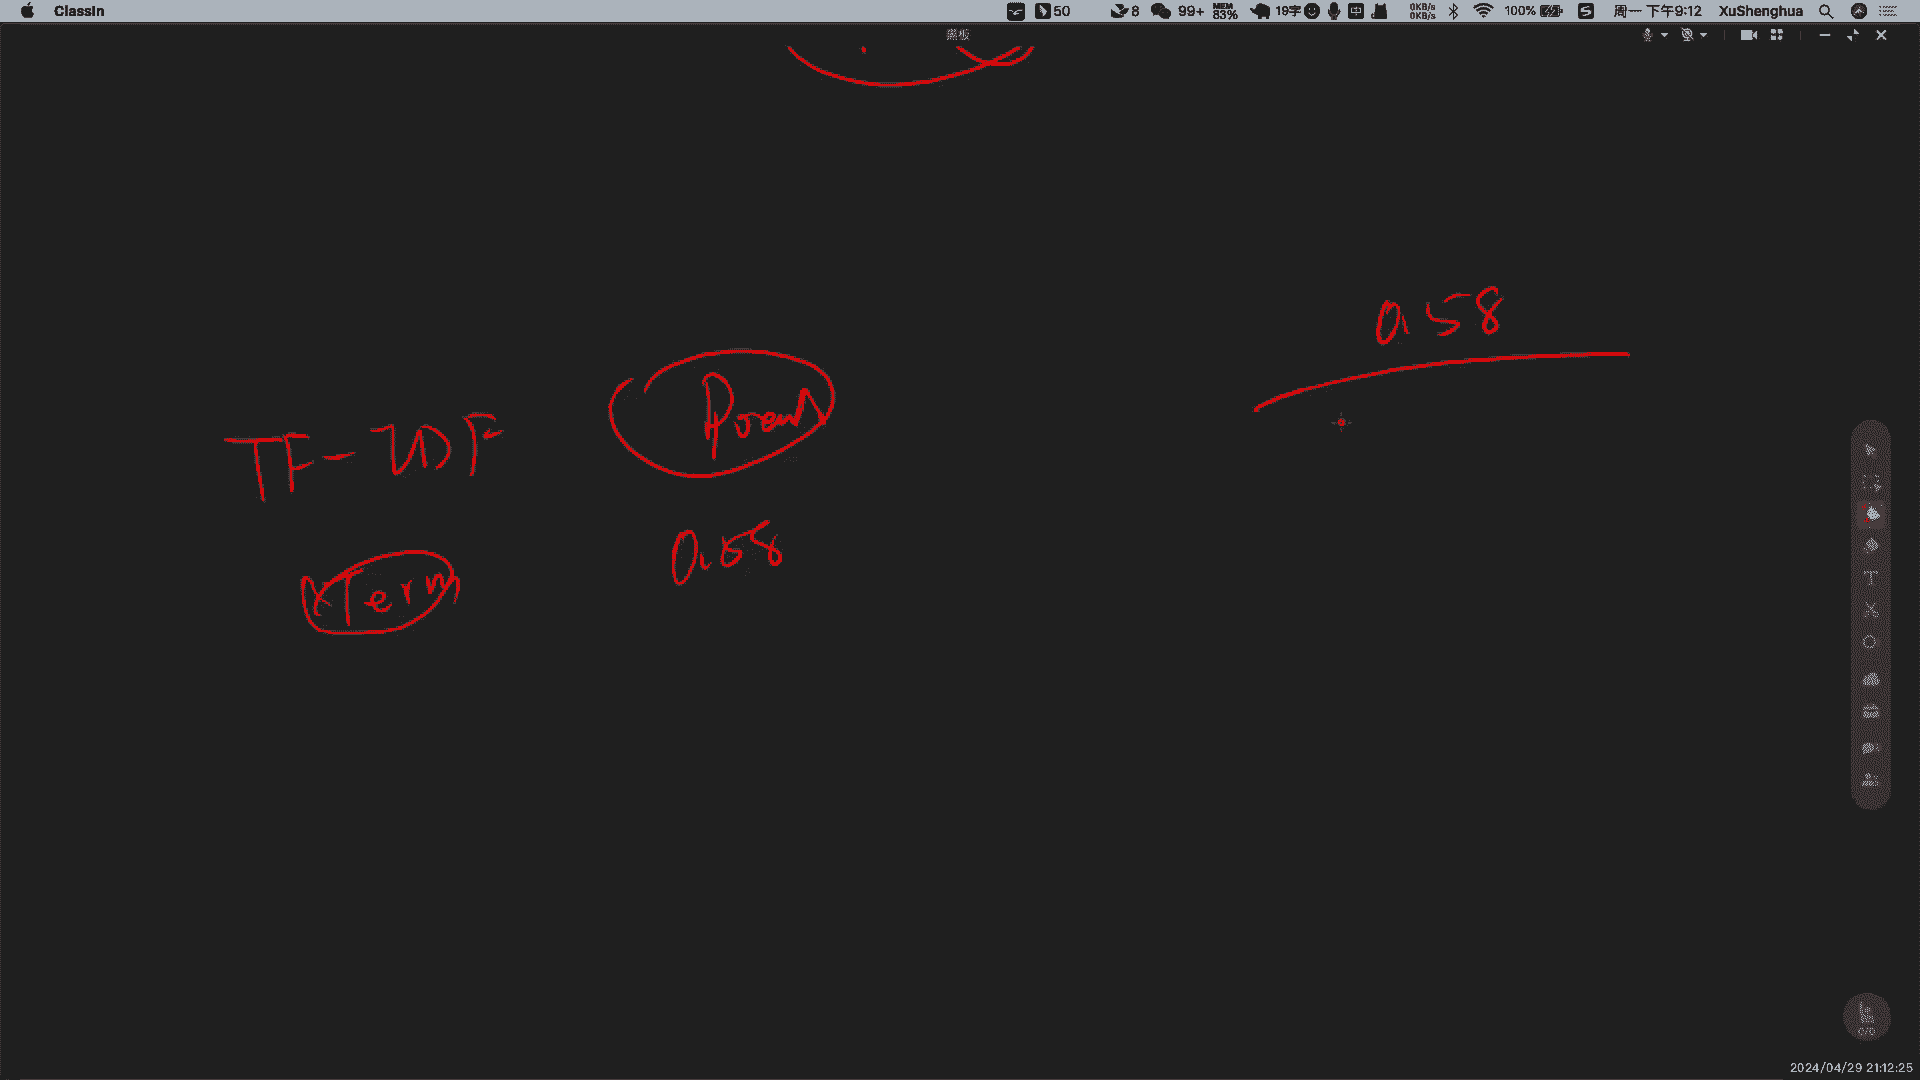 ClassIn
50
8
99+
MEM
83%
19字
0KB/s
0KB/s
100%
周一 下午9:12
XuShenghua
黑板
0.58
TF-IDF
0.58
Term
0/0
2024/04/29 21:12:25